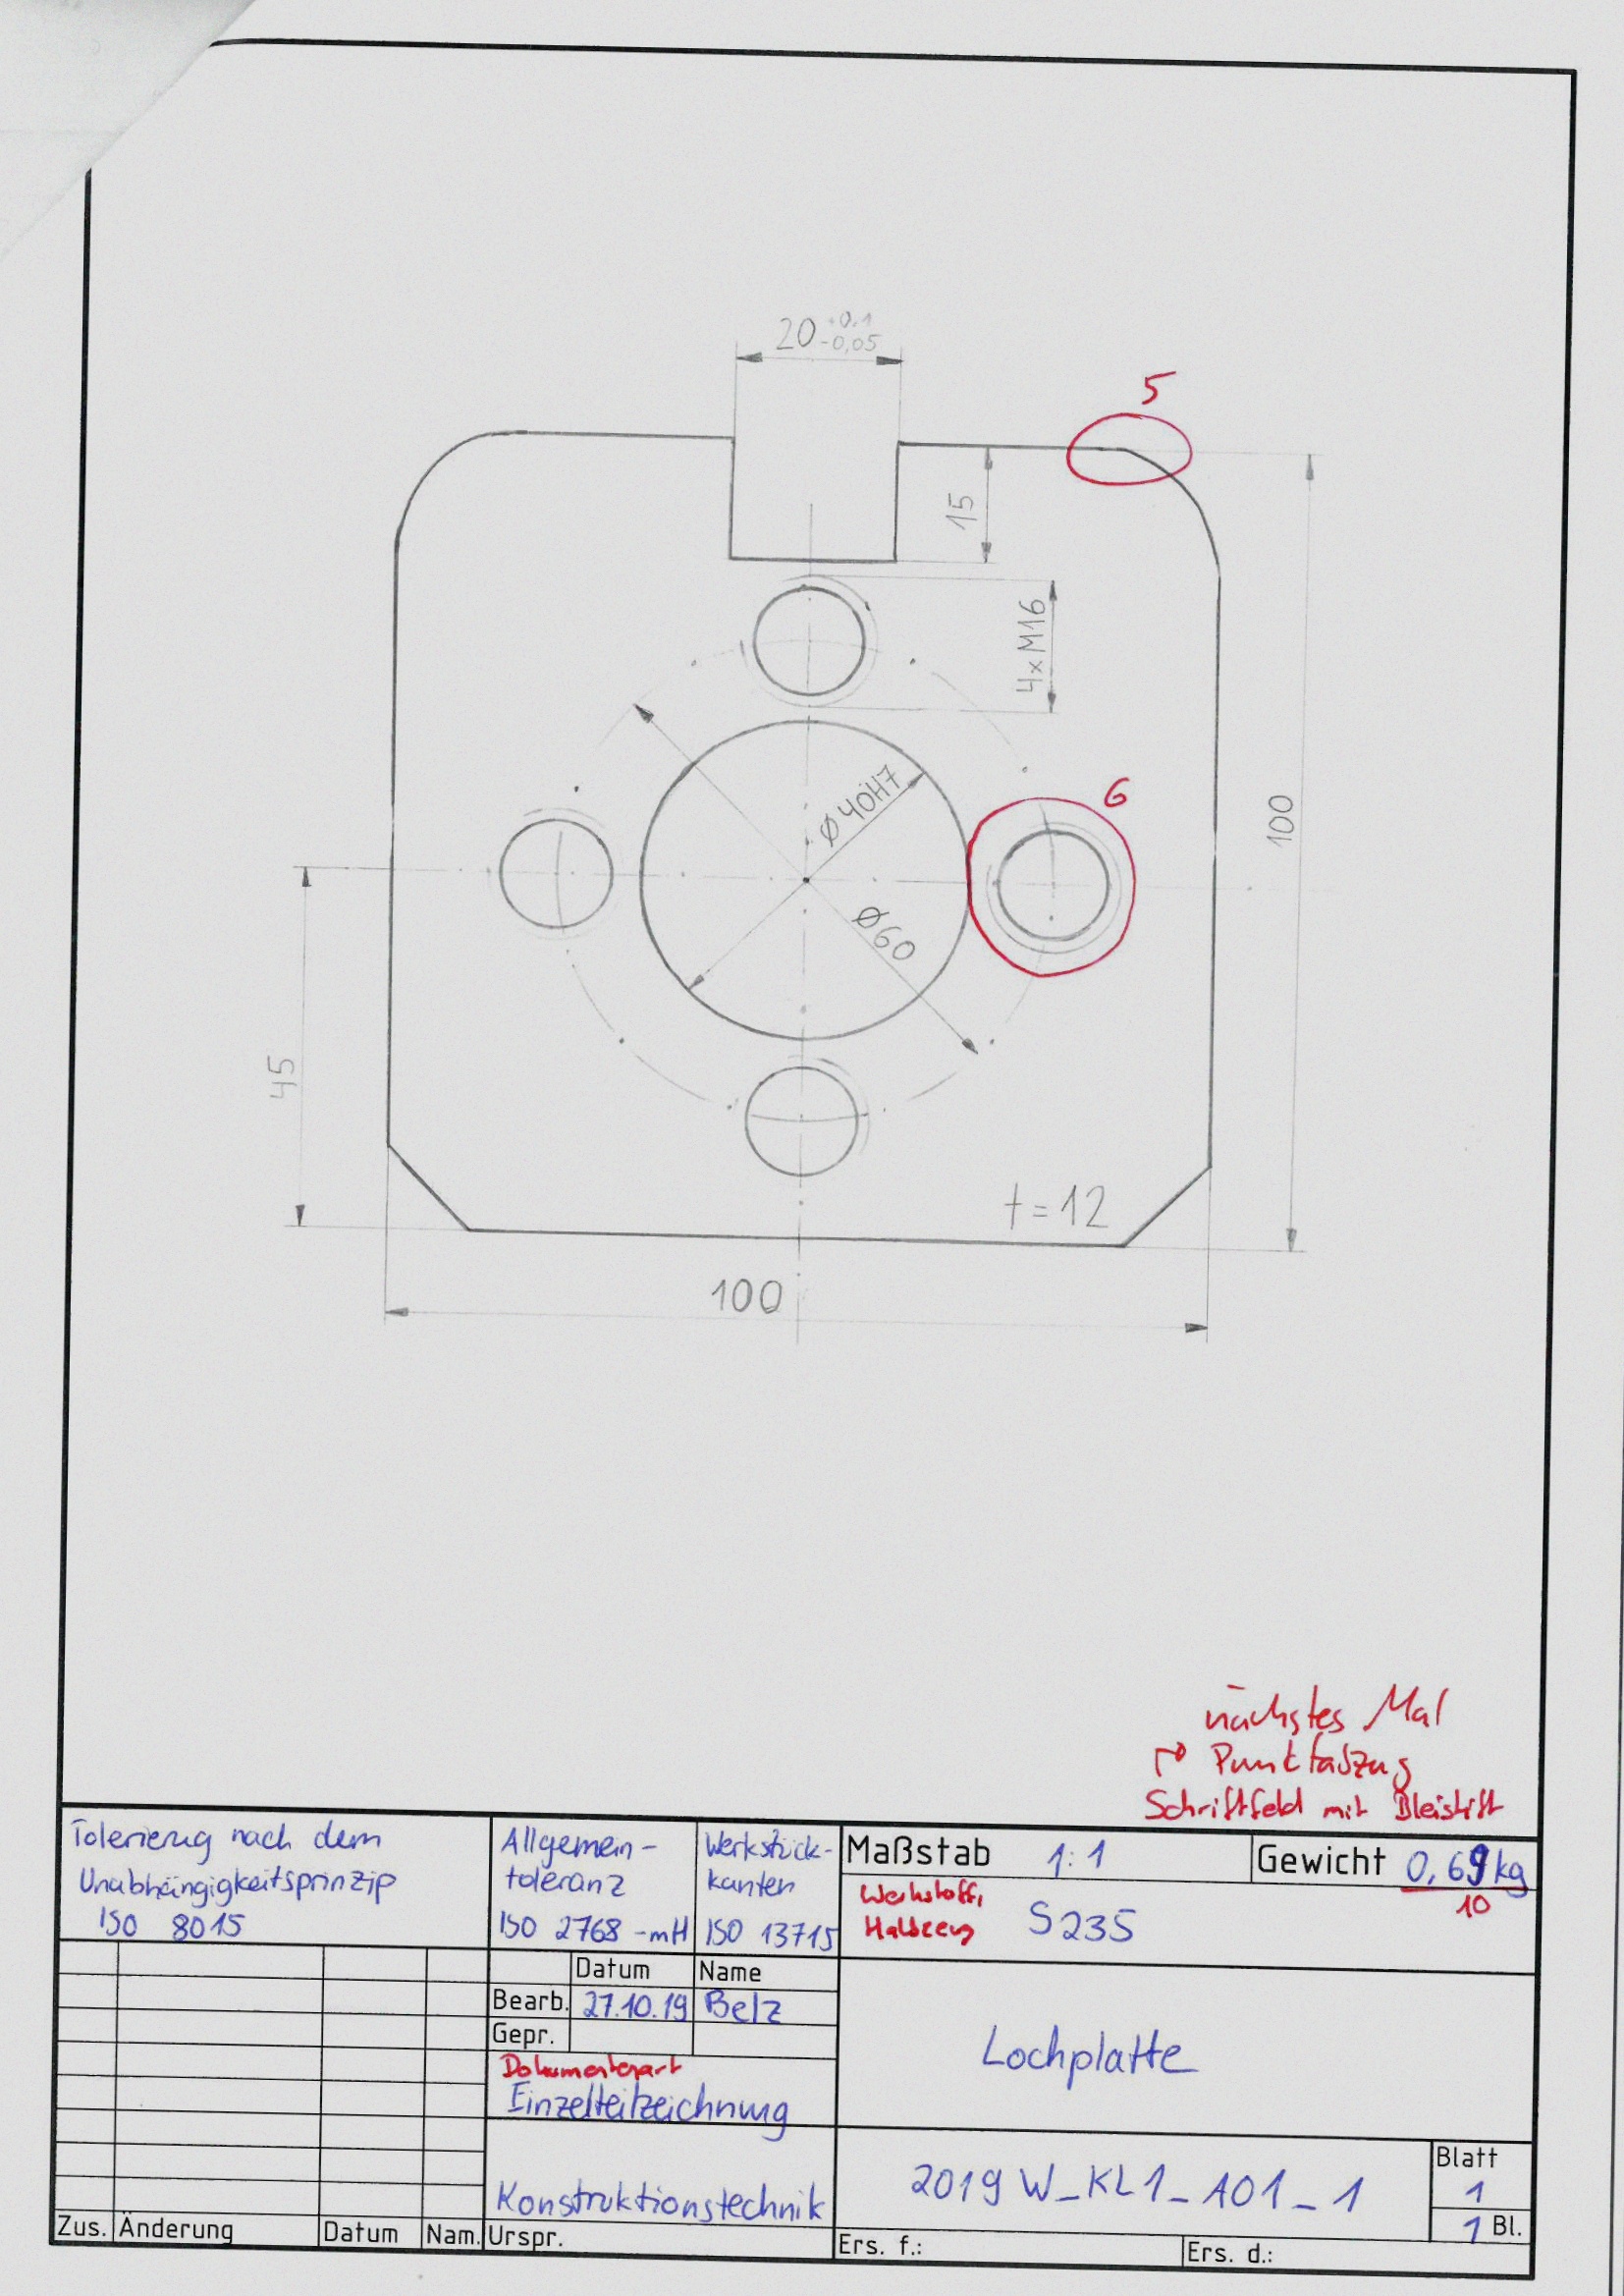 20 +0,1 -0,05
5
15
4xM16
Ø40H7
6
100
Ø60
45
t=12
100
nächstes Mal
Schriftfeld mit Bleistift
Tolerierug nach dem
Unabhängigkeitsprinzip
ISO 8015
Allgemein-
toleranz
ISO 2768 -mH
Werkstück-
kanten
ISO 13715
Maßstab 1:1
Gewicht 0,69kg
10
Werkstoff,
Halbzeug
S235
Datum Name
Bearb. 27.10.19 Belz
Gepr.
Dokumentenart
Einzelteilzeichnung
Lochplatte
Konstruktionstechnik
2019W_KL1_A01_1
Blatt
1
1 Bl.
Zus. Änderung Datum Nam. Urspr. Ers. f.: Ers. d.: